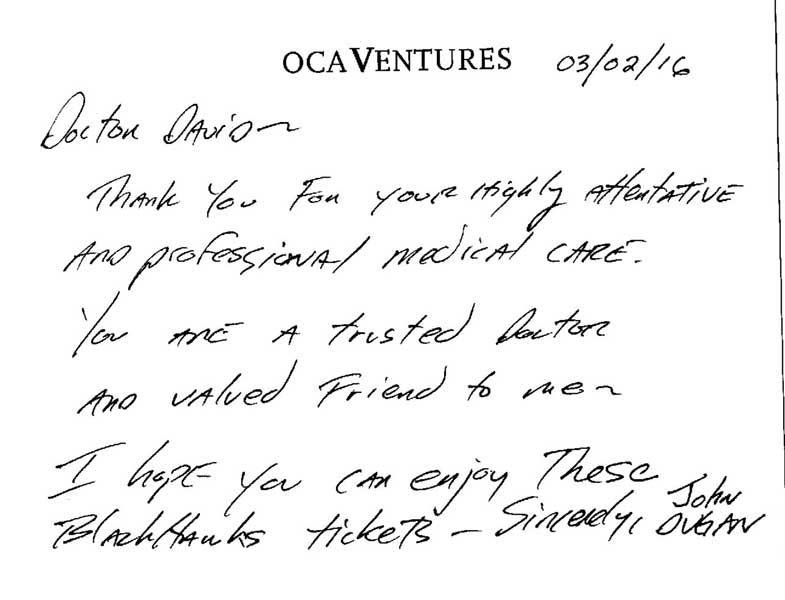 OCAVENTURES 03/02/16
Doctor David~
Thank You For your Highly Attentative
And professional medical CARE.
You are a trusted Doctor
And valued Friend to me~
I hope you can enjoy These
BlackHawks tickets – Sincerely, John
DUGAN